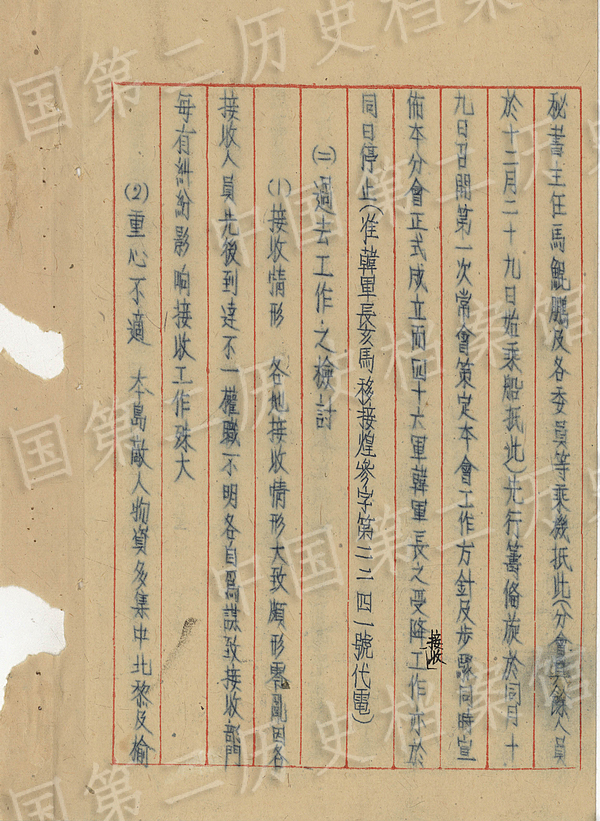 秘書主任馬鯤鵬及各委員等乘機抵此(分會其餘人員
於十二月二十九日始乘船抵此)先行籌備旋於同月十
九日召開第一次常會策定本會工作方針及步驟同時宣
佈本分會正式成立而四十六軍韓軍長之受降接收工作亦於
同日停止(准韓軍長亥馬移接煌參字第二二四一號代電)
(二)過去工作之檢討
(1)接收情形 各地接收情形大致頗形零亂因各
接收人員先後到達不一權職不明各自爲謀致接收部門
每有糾紛影响接收工作殊大
(2)重心不適 本島敵人物資多集中北黎及榆
中国第二历史档案馆